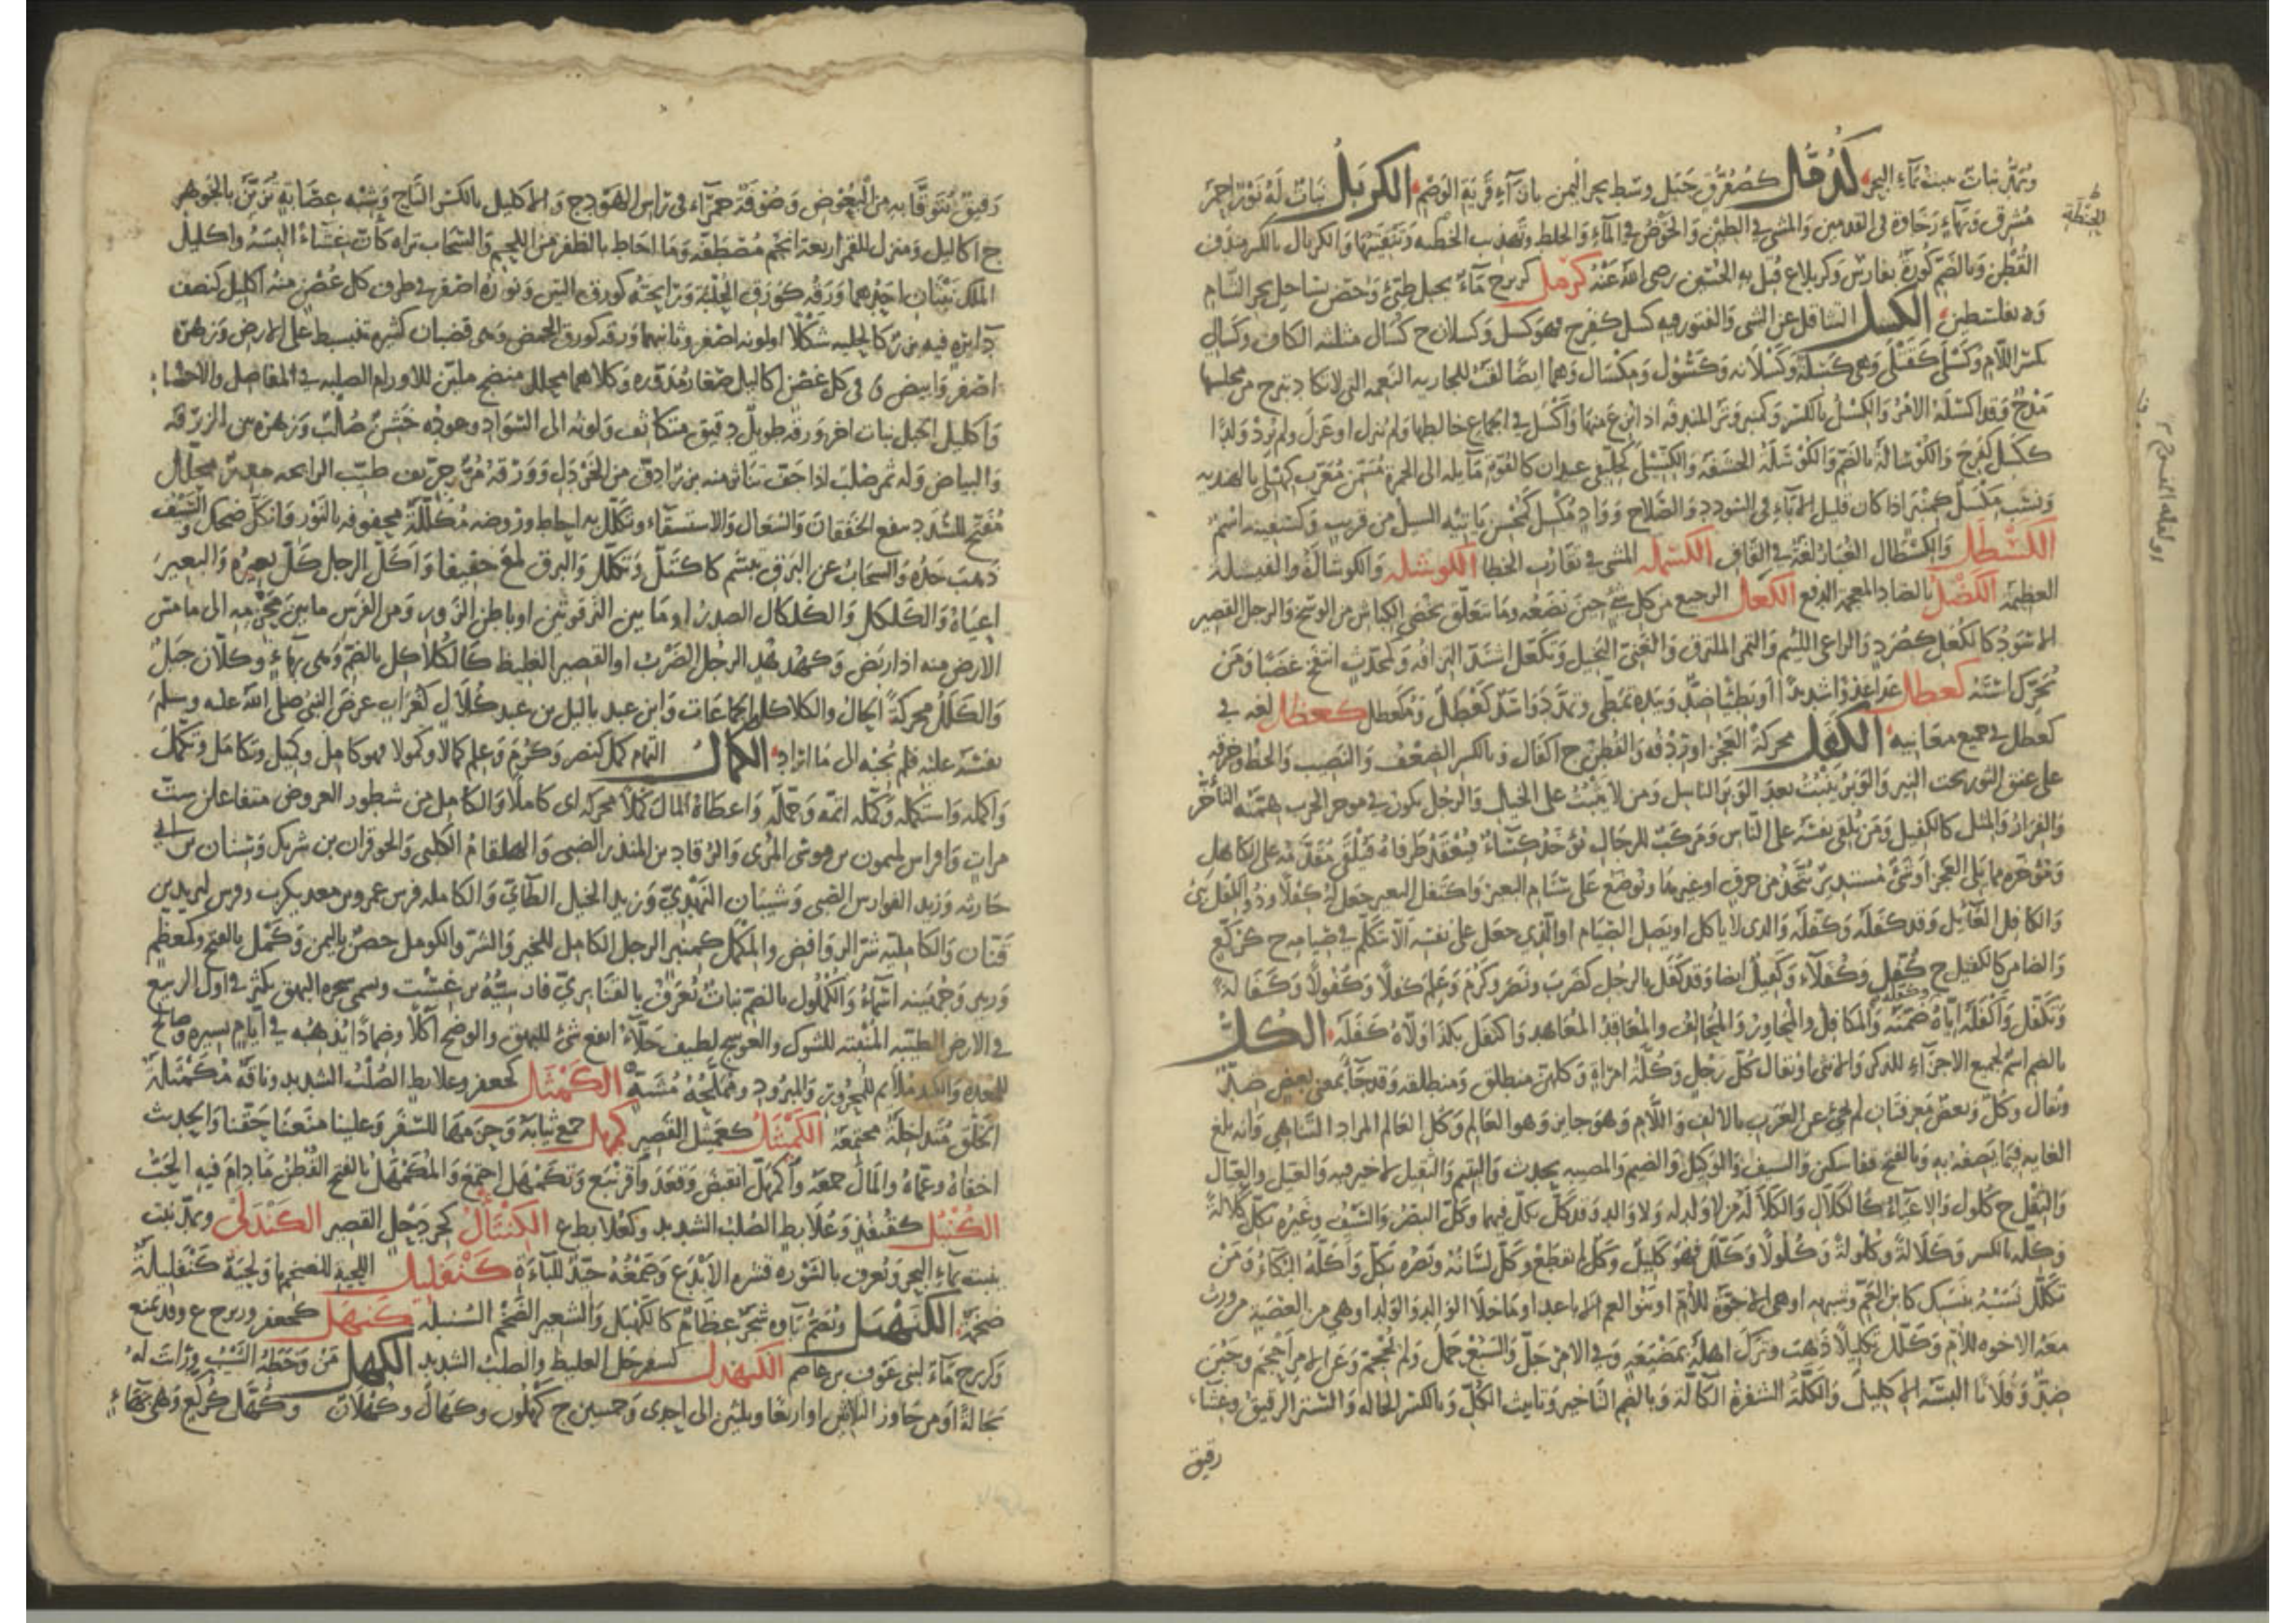 ويمد نبات ينبت بماء البحر كدرقال كصعرق جبل وسط بحر اليمن بازاء قرية الوضم الكربل نبات له نور احمر
مشرق وبهاء رخاوة في القدمين والمشي في الطين والخوض في الماء والخلط وتهذيب الحنطة وتنقيتها والكربال بالكسر مندف
الحنطة
القطن وبالضم كورة بفارس وكربلاء ع قتل به الحسين رضي الله عنه كرمل كزبرج ماء بجبل طيئ وحصن بساحل بحر الشام
وة بفلسطين الكسل التثاقل عن الشي والفتور فيه كسل كفرح فهو كسل وكسلان ج كسالى مثلثة الكاف وكسالي
بكسر اللام وكسلى كقتلى وهي كسلة وكسلانة وكسول ومكسال وهما ايضا لغت للجارية النعمة التي لا تكاد تبرح من مجلسها
مدح وقد اكسله الامر والكسل بالكسر وكمنبر وتر المندفة اذا نزع منها واكسل في الجماع خالطها ولم ينزل او عزل ولم يرد ولدا
ككسل كفرح والكوسالة بالضم والكوسلة الحشفة والكسيلى كخليفى عيدان كالفوة مايله الى الحمرة مسمن معرب كهلى بالهندية
ونسب مكسل كمنبر اذا كان قليل الاباء في السودد والصلاح وواد مكسل كمحسن ياتيه السيل من قريب وكسفينة اسم
الكسطل والكسطال الغبار لغة في القاف الكسملة المشي في تقارب الخطا الكوشلة والكوشالة والفيشلة
العظيمة الكضل بالضاد المعجمة الدفع الكعل الرجيع من كل شي حين يضعه وما يتعلق بخصى الكباش من الوسخ والرجل القصير
الاسود كالكعل كصرد والراعي اللئيم والتمر الملتزق والغني البخيل وتكعل اشتد التزاقه وكمحدث انتفخ غضبا ومن
تحرك استه كعطل عدا عدوا شديدا او بطيئا ضد وبيده تمطى وتمدد واسد كعطل ومكعطل كعظل لغة في
كعطل في جميع معانيه الكفل محركة العجز او ردفه والقطن ج اكفال وبالكسر الضعف والنصيب والحظ وخرقة
على عنق الثور تحت النير والوبر ينبت بعد الوبر الناسل ومن لا يثبت على الخيل والرجل يكون في موخر الحرب همته التاخر
والفرار والمثل كالكفيل ومن يلقي نفسه على الناس ومركب للرجال يؤخذ كساء فيعقد طرفاه فيلقى مقدمه على الكاهل
ومؤخره مما يلي العجز او شي مستدير يتخذ من خرق او غيرها ويوضع على سنام البعير واكتفل البعير جعل له كفلا وذو الكفل نبي
والكافل العائل وقد كفله وكفله والذي لا ياكل او يصل الصيام او الذي جعل على نفسه الا يتكلم في صيامه ج كركع
والضامن كالكفيل ج كفل وكفلاء وكفيل ايضا وقد كفل بالرجل كضرب ونصر وكرم وعلم كفلا وكفولا وكفالة
وتكفل واكفله اياه ضمنه والمكافل والمجاور والمحالف والمعاقد المعاهد واكتفل بكذا ولاه كفله الكل
بالضم اسم لجميع الاجزاء للذكر والانثى او يقال كل رجل وكلة امراة وكلهن منطلق ومنطلقة وقد جاء بمعنى بعض ضد
ويقال كل وبعض معرفتان لم يجئ عن العرب بالالف واللام وهو جايز وهو العالم وكل العالم المراد التناهي وانه بلغ
الغاية فيما يصفه به وبالفتح قفا سكين والسيف والوكيل والصنم والمصيبة تحدث واليتيم والثقيل لا خير فيه والعيل والعيال
والثقل ج كلول والاعياء كالكلال والكلالة من لا ولد له ولا والد وقد كل يكل فيهما وكل البصر والسيف وغيره يكل كلالة
وكلة بالكسر وكلالة وكلولة وكلولا وكلل فهو كليل وكل لم يقطع وكل لسانه وبصره يكل واكله البكاء ومن
تكلل نسبه بنسبك كابن العم وشبهه او هي الاخوة للام او بنو العم الاباعد او ما خلا الوالد والولد او هي من العصبة من ورث
معه الاخوة للام وكلل تكليلا ذهب وترك اهله بمضيعة وفي الامر جد والسبع حمل ولم يحجم وعن الامر احجم وجبن
ضد وفلانا البسه الاكليل والكلة الشفرة الكالة وبالضم التاخير وتانيث الكل وبالكسر الحالة والستر الرقيق وغشاء
رقيق
رقيق يتوقا به من البعوض وصوفة حمراء في راس الهودج والاكليل بالكسر التاج وشبه عصابة تزين بالجوهر
ج اكاليل ومنزل للقمر اربعة انجم مصطفة وما احاط بالظفر من اللحم والسحاب تراه كان غشاء البسه واكليل
الملك نبتان احدهما ورقه كورق الحلبة ورايحته كورق التين ونوره اصفر في طرف كل غصن منه اكليل كنصف
دايرة فيه بزر كالحلبة شكلا ولونه اصفر وثانيهما ورقه كورق الحمص وهي قضبان كثيرة تنبسط على الارض وزهره
اصفر وابيض في كل غصن اكاليل صغار مدورة وكلاهما محلل منضج ملين للاورام الصلبة في المفاصل والاحشاء
واكليل الجبل نبات اخر ورقه طويل دقيق متكاثف ولونه الى السواد وعوده خشن صلب وزهره بين الزرقة
والبياض وله ثمر صلب اذا جف تناثر منه بزر ادق من الخردل وورقه مر حريف طيب الرايحة مدر محلل
مفتح للسدد ينفع الخفقان والسعال والاستسقاء وتكلل به احاط وروضة مكللة محفوفة بالنور وانكل ضحك والسيف
ذهب حده والسحاب عن البرق تبسم كاكتل وتكلل والبرق لمع خفيفا واكل الرجل كل بعيره والبعير
اعياه والكلكل والكلكال الصدر او ما بين الترقوتين او باطن الزور ومن الفرس ما بين محزمه الى ما مس
الارض منه اذا ربض وكهدهد الرجل الضرب او القصير الغليظ كالكلاكل بالضم وهي بهاء وكلان جبل
والكلل محركة الحال والكلاكل الجماعات وابن عبد ياليل بن عبد كلال كغراب عرض النبي صلى الله عليه وسلم
نفسه عليه فلم يجبه الى ما اراد الكمال التمام كمل كنصر وكرم وعلم كمالا وكمولا فهو كامل وكميل وتكامل وتكمل
واكمله واستكمله وكمله اتمه وجمله واعطاه المال كملا محركة اي كاملا والكامل من شطور العروض متفاعلن ست
مرات وافراس لميمون بن موسى المري والرقاد بن المنذر الضبي والهلقام الكلبي والحوفزان بن شريك وسنان بن ابي
حارثة وزيد الفوارس الضبي وشيبان النهدي وزيد الخيل الطائي والكاملة فرس عمرو بن معديكرب وفرس ليزيد بن
قنان والكاملية شر الروافض والمكمل كمنبر الرجل الكامل للخير والشر والكومل حصن باليمن وكمل بالفتح وكمعظم
وزبير وجهينة اسماء والكملول بالضم نبات يعرف بالقنابري فارسيته برغست ويسمى شجرة البهق يكثر في اول الربيع
في الارض الطيبة المنبتة للشوك والعوسج لطيف جلاء انفع شي للبهق والوضح اكلا وضمادا يذهبه في ايام يسيرة وصالح
للمعدة والكبد ملائم للمحرور والمبرود ومملحه مشه الكمثل كجعفر وعلابط الصلب الشديد وناقة مكمثلة
الخلق متداخلة مجتمعة الكميثل كعميثل القصير كمهل جمع ثيابه وحزمها للسفر وعلينا منعنا حقنا والحديث
اخفاه وعماه والمال جمعه واكمهل انقبض وقعد واقرنبع وتكمهل اجتمع والمكمهل بالفتح القطن ما دام فيه الحب
الكنبل كقنفذ وعلابط الصلب الشديد وكعلابط ع الكنتال كجردحل القصير الكندلى ويمد نبت
ينبت بماء البحر ويعرف بالشورة قشره الايدع وصمغه جيد للباءة كنفليل اللحية الضخمها ولحية كنفليلة
ضخمة الكنهبل وتضم باوه شجر عظام كالكهبل والشعير الضخم السنبلة كنهل كجعفر وزبرج ع وقد يمنع
وكزبرج ماء لبني عوف بن عاصم الكنهدل كسفرجل الغليظ والصلب الشديد الكهل من وخطه الشيب ورايت له
بجالة او من جاوز الثلاثين او اربعا وثلثين الى احدى وخمسين ج كهلون وكهول وكهال وكهلان وكهل كركع وهي بهاء